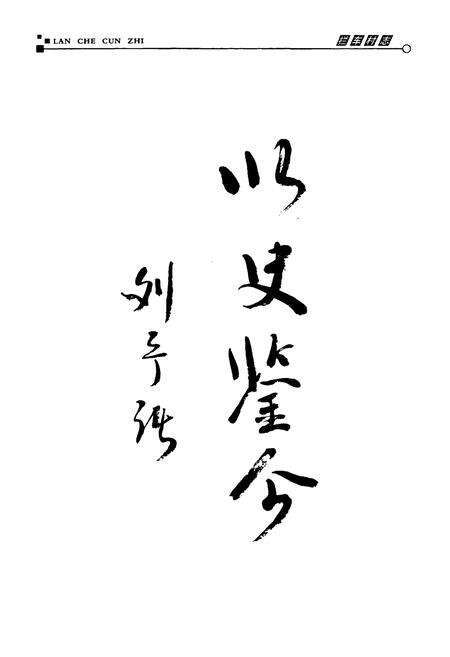 LAN CHE CUN ZHI
拦车村志
以史鉴今
刘予